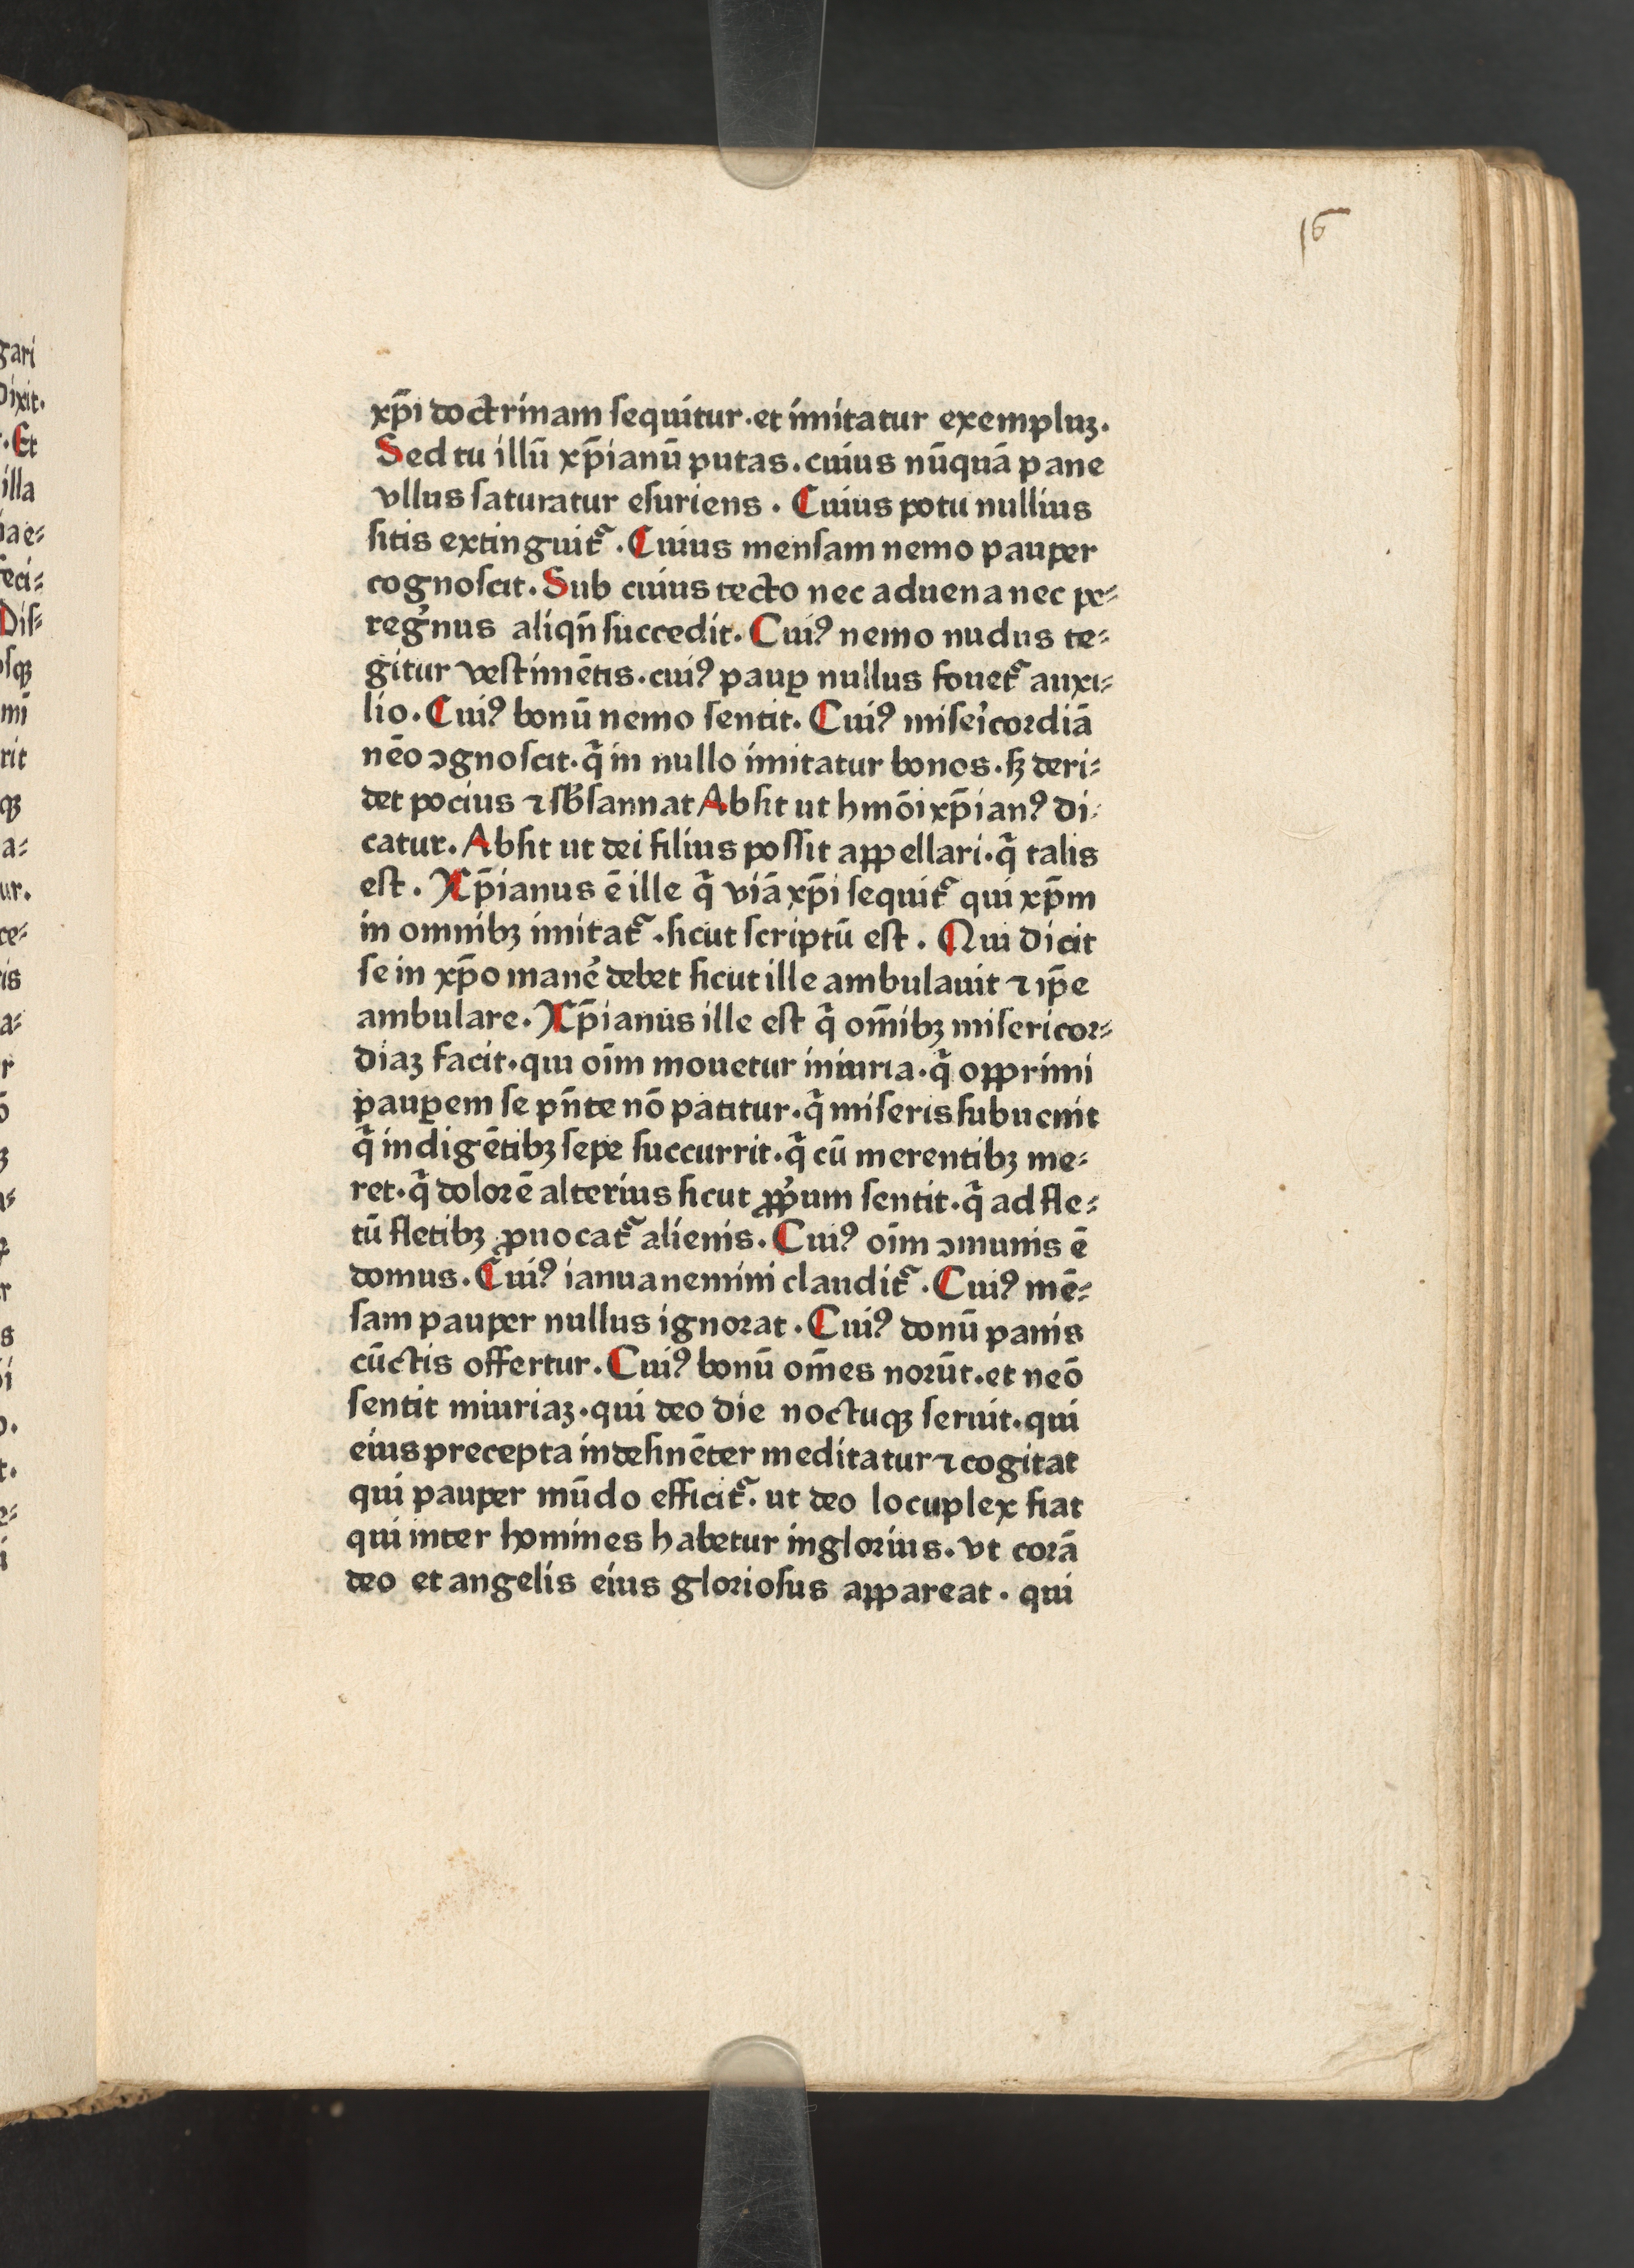 16
xp̄i doctrinam ſequitur·et imitatur exempluꝫ.
Sed tu illū xp̄ianū putas.cuius nūquā pane
vllus ſaturatur eſuriens . Cuius potu nullius
ſitis extinguit᷑ . Cuius menſam nemo pauper
cognoſcit. Sub cuius tecto nec aduena nec pe⸗
regͥnus aliqn̄ ſuccedit. Cuiꝰ nemo nudus te⸗
gitur veſtimētis.cuiꝰ paup̲ nullus fouet᷑ auxi⸗
lio. Cuiꝰ bonū nemo ſentit. Cuiꝰ miſeͥcordiā
nēo ꝯgnoſcit·qͥ in nullo imitatur bonos.ſꝫ deri⸗
det pocius ⁊ ſb̄ſannat Abſit ut hmōi xp̄ianꝰ di⸗
catur. Abſit ut dei filius poſſit appellari.qͥ talis
eſt . Xp̄ianus ē ille qͥ viā xp̄i ſequit᷑ qui xp̄m
in omnibꝫ imitat᷑ .ſicut ſcriptū eſt . Qui dicit
ſe in xp̄o manē debet ſicut ille ambulauit ⁊ ip̄e
ambulare. Xp̄ianus ille eſt qͥ om̄ibꝫ miſericor⸗
diaꝫ facit.qui oīm mouetur iniuria.qͥ opprimi
pauꝑem ſe pn̄te nō patitur.qͥ miſeris ſubuenit
qͥ indigētibꝫ ſepe ſuccurrit.qͥ cū merentibꝫ me⸗
ret.qͥ dolorē alterius ſicut ꝓpͥum ſentit.qͥ ad fle⸗
tū fletibꝫ ꝓuocat᷑ alienis. Cuiꝰ oīm ꝯmunis ē
domus. Cuiꝰ ianua nemini claudit᷑ . Cuiꝰ mē⸗
ſam pauper nullus ignorat . Cuiꝰ donū panis
cūctis offertur. Cuiꝰ bonū om̄es norūt.et neō
ſentit iniuriaꝫ.qui deo die noctuqꝫ ſeruit.qui
eius precepta indeſinēter meditatur ⁊ cogitat
qui pauper mūdo efficit᷑. ut deo locuplex fiat
qui inter homines habetur inglorius. vt corā
deo et angelis eius glorioſus appareat . qui